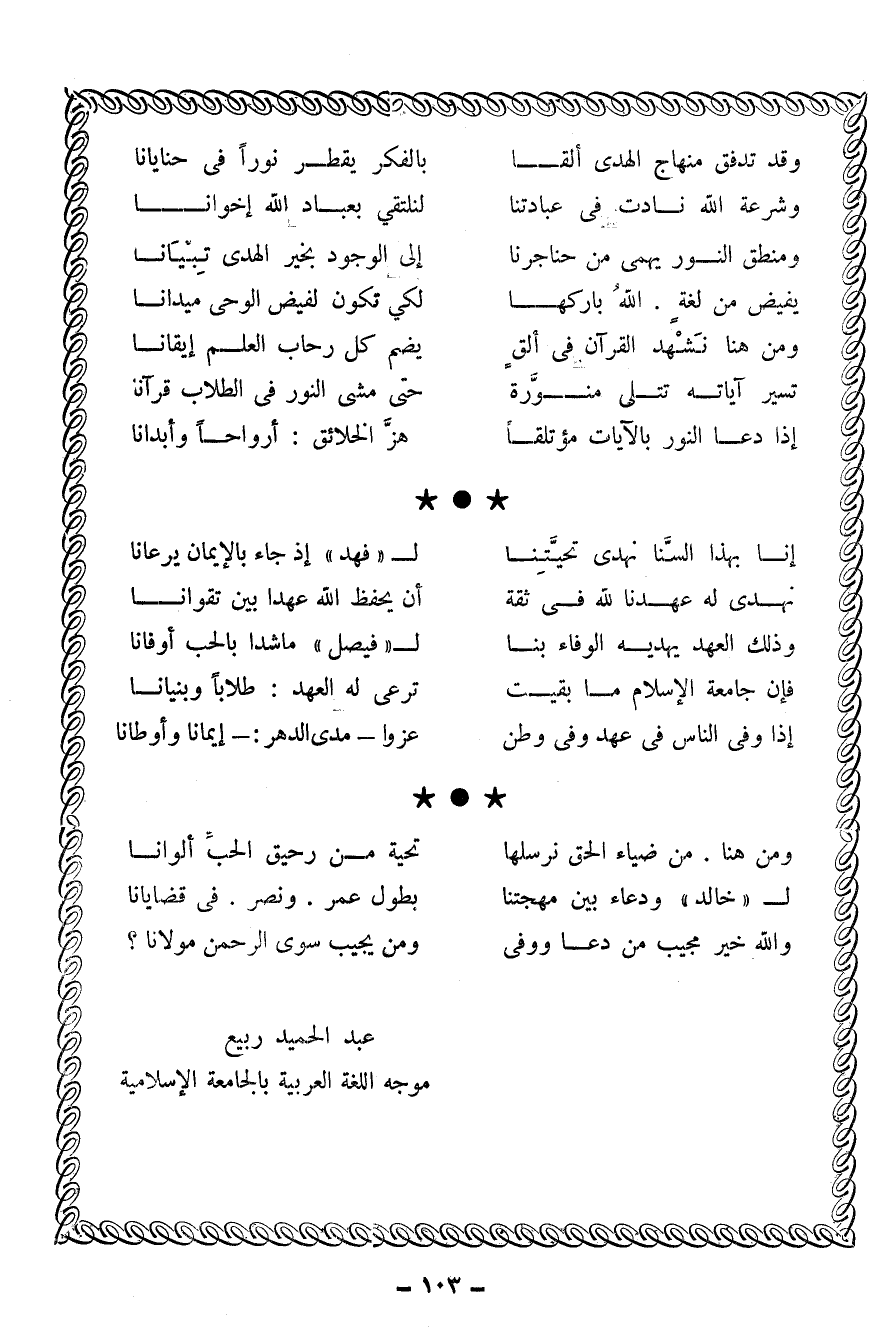 وقد تدفق منهاج الهدى ألقا بالفكر يقطر نوراً فى حنايانا
وشرعة الله نادت فى عبادتنا لنلتقي بعباد الله إخوانا
ومنطق النور يهمى من حناجرنا إلى الوجود بخير الهدى تِبْيَانا
يفيض من لغةٍ . اللهُ باركها لكي تكون لفيض الوحى ميدانا
ومن هنا نَشْهد القرآن فى ألقٍ يضم كل رحاب العلم إيقانا
تسير آياته تتلى منوَّرة حتى مشى النور فى الطلاب قرآنا
إذا دعا النور بالآيات مؤتلقاً هزَّ الخلائق : أرواحاً وأبدانا
★ ● ★
إنا بهذا السَّنا نهدى تحيَّتِنا لـ «فهد» إذ جاء بالإيمان يرعانا
نهدى له عهدنا لله فى ثقة أن يحفظ الله عهدا بين تقوانا
وذلك العهد يهديه الوفاء بنا لـ«فيصل» ماشدا بالحب أوفانا
فإن جامعة الإسلام ما بقيت ترعى له العهد : طلاباً وبنيانا
إذا وفى الناس فى عهد وفى وطن عزوا – مدى الدهر :– إيمانا وأوطانا
★ ● ★
ومن هنا . من ضياء الحق نرسلها تحية من رحيق الحبِّ ألوانا
لـ «خالد» ودعاء بين مهجتنا بطول عمر . ونصر . فى قضايانا
والله خير مجيب من دعا ووفى ومن يجيب سوى الرحمن مولانا ؟
عبد الحميد ربيع
موجه اللغة العربية بالجامعة الإسلامية
– ١٠٣ –